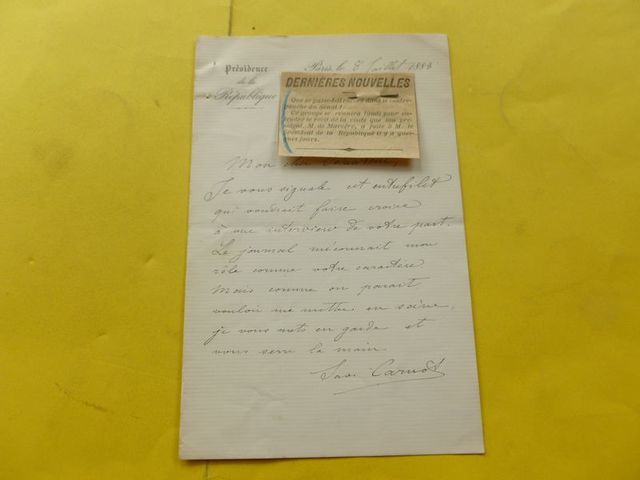 Présidence
de la
République
Paris, le 8 Juillet 188
DERNIÈRES NOUVELLES
Que se passe-t-il dans le centre
gauche du Sénat?
Ce groupe se réunira lundi pour
le récit de la visite que son pré-
sident, M. de Marcère, a faite à M. le
président de la République il y a quel-
ques jours.
Mon cher
Je vous signale cet entrefilet
qui voudrait faire croire
à une interview de votre part.
Le journal méconnait mon
rôle comme votre caractère
Mais comme on parait
vouloir me mettre en scène,
je vous mets en garde et
vous serre la main
Sadi Carnot